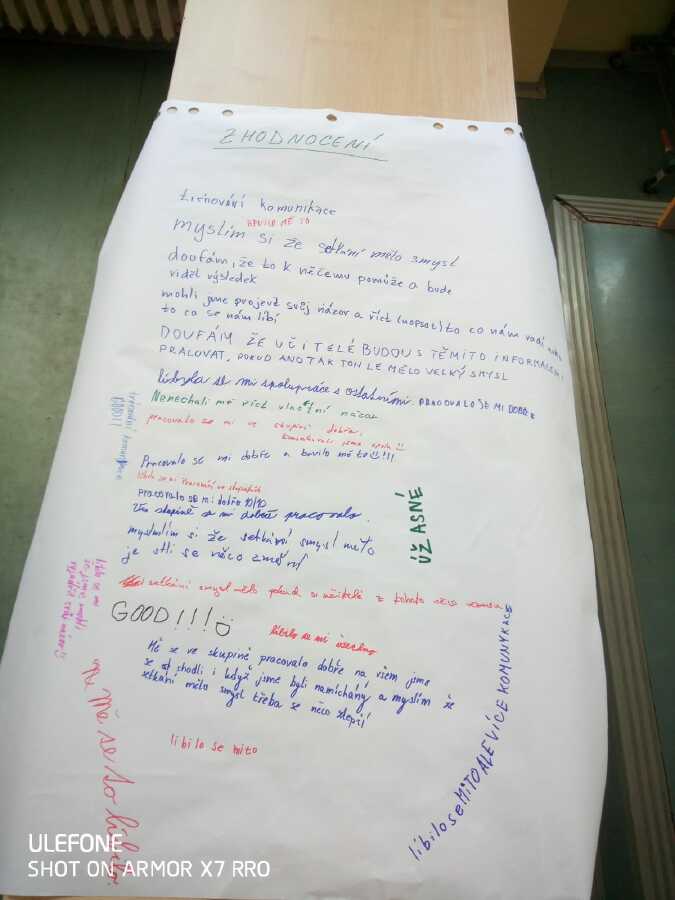 ZHODNOCENÍ
komunikace
BAVILO MĚ TO
myslím si že setkání mělo smysl
doufám, že to k něčemu pomůže a bude
vidět výsledek
mohli jme projevit svůj názor a říct (napsat) to co nám vadí
to co se nám líbí
DOUFÁM ŽE UČITELÉ BUDOU S TĚMITO INFORMACEMI
PRACOVAT, POKUD ANO TAK TOHLE MĚLO VELKÝ SMYSL
líbyla se mi spolupráce s ostatními. PRACOVALO SE MI DOBŘE
Nenechali mě říct vlastní názor
pracovalo se mi ve skupině dobře,
komunikovali jsme spolu !!
Pracovalo se mi dobře a bavilo mě to !!!
líbilo se mi Pracování ve skupinách
pracovalo se mi dobře 10/10
se mi dobře pracovalo.
ÚŽASNÉ
si že setkání smysl mělo
je stli se něco změní
setkání smysl mělo pokud si učitelé z tohoto něco vezmou
GOOD!!!
líbilo se mi všechno
Mě se ve skupině pracovalo dobře na všem jsme
se shodli i když jsme byli namíchány a myslím že
setkání mělo smysl třeba se něco zlepší
libilo se mito
libilo se MITO ALE VÍCE KOMUNYKACE
se to
ULEFONE
SHOT ON ARMOR X7 RRO